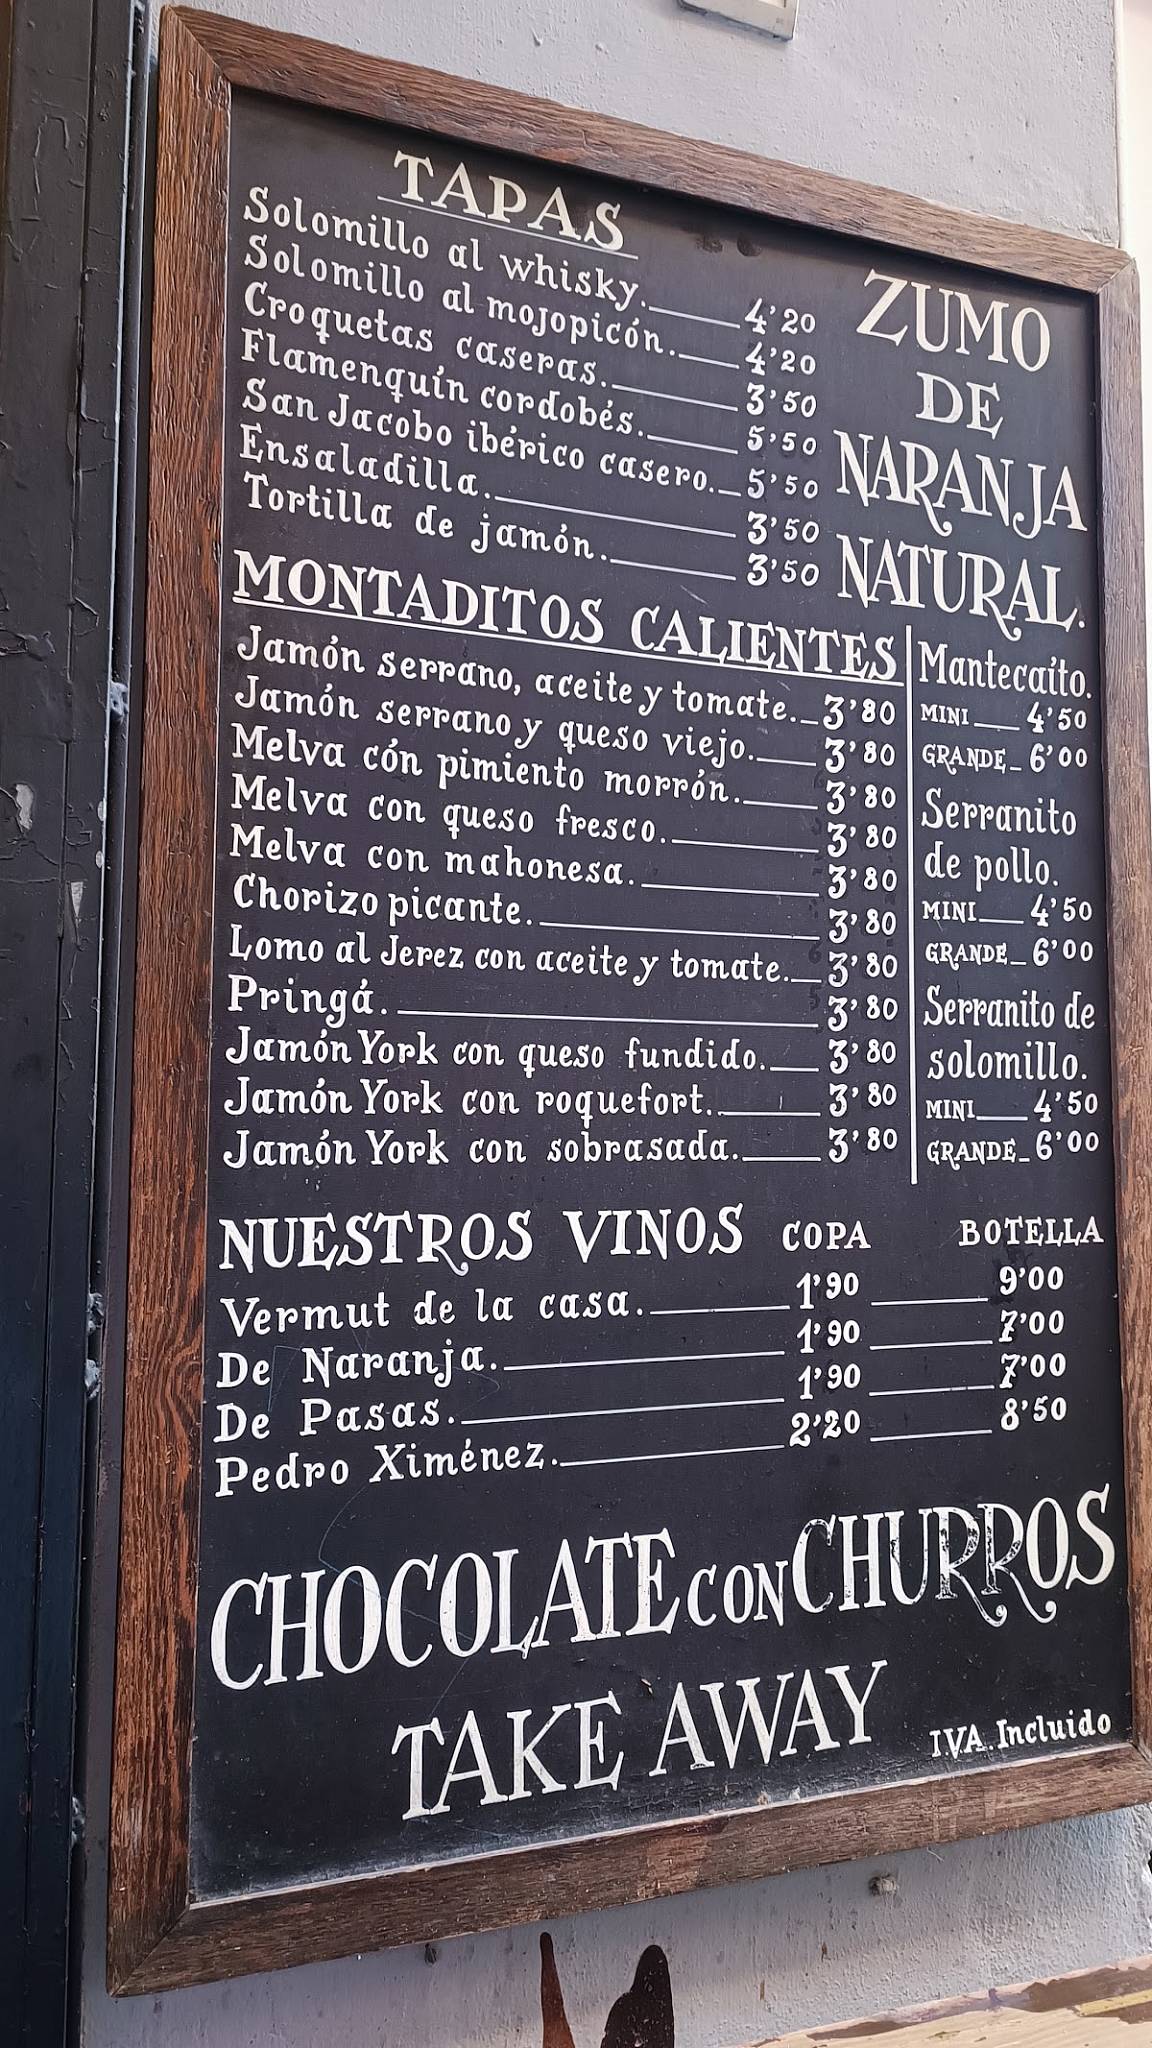 TAPAS
Solomillo al whisky. 4'20
Solomillo al mojopicón. 4'20
Croquetas caseras. 3'50
Flamenquín cordobés. 5'50
San Jacobo ibérico casero. 5'50
Ensaladilla. 3'50
Tortilla de jamón. 3'50
ZUMO
DE
NARANJA
NATURAL.
MONTADITOS CALIENTES
Jamón serrano, aceite y tomate. 3'80
Jamón serrano y queso viejo. 3'80
Melva cón pimiento morrón. 3'80
Melva con queso fresco. 3'80
Melva con mahonesa. 3'80
Chorizo picante. 3'80
Lomo al Jerez con aceite y tomate. 3'80
Pringá. 3'80
Jamón York con queso fundido. 3'80
Jamón York con roquefort. 3'80
Jamón York con sobrasada. 3'80
Mantecaíto.
MINI 4'50
GRANDE 6'00
Serranito
de pollo.
MINI 4'50
GRANDE 6'00
Serranito de
solomillo.
MINI 4'50
GRANDE 6'00
NUESTROS VINOS COPA BOTELLA
Vermut de la casa. 1'90 9'00
De Naranja. 1'90 7'00
De Pasas. 1'90 7'00
Pedro Ximénez. 2'20 8'50
CHOCOLATE CON CHURROS
TAKE AWAY
I.V.A. Incluido